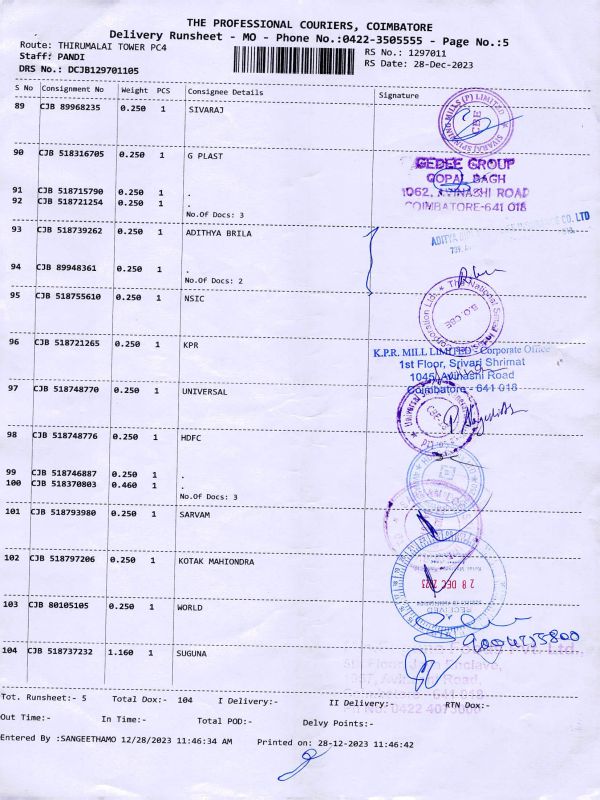 THE PROFESSIONAL COURIERS, COIMBATORE
Delivery Runsheet - MO - Phone No.:0422-3505555 - Page No.:5
Route: THIRUMALAI TOWER PC4
RS No.: 1297011
Staff: PANDI
RS Date: 28-Dec-2023
DRS No.: DCJB129701105
S No Consignment No Weight PCS Consignee Details Signature
89 CJB 89968235 0.250 1 SIVARAJ
SIVARAJ SPINNING MILLS (P) LIMITED
CBE
90 CJB 518316705 0.250 1 G PLAST
GEDEE GROUP
GOPAL BAGH
1062, AVINASHI ROAD
COIMBATORE-641 018
91 CJB 518715790 0.250 1 .
92 CJB 518721254 0.250 1 .
No.Of Docs: 3
93 CJB 518739262 0.250 1 ADITHYA BRILA
ADITYA
CO. LTD
94 CJB 89948361 0.250 1 .
No.Of Docs: 2
95 CJB 518755610 0.250 1 NSIC
The National Small
Corporation Ltd.
B.O. CBE
96 CJB 518721265 0.250 1 KPR
K.P.R. MILL LIMITED - Corporate Office
1st Floor, Srivari Shrimat
1045, Avinashi Road
Coimbatore - 641 018
97 CJB 518748770 0.250 1 UNIVERSAL
Universal
98 CJB 518748776 0.250 1 HDFC
99 CJB 518746887 0.250 1 .
100 CJB 518370803 0.460 1 .
No.Of Docs: 3
101 CJB 518793980 0.250 1 SARVAM
102 CJB 518797206 0.250 1 KOTAK MAHIONDRA
28 DEC 2023
RECEIVED
103 CJB 80105105 0.250 1 WORLD
104 CJB 518737232 1.160 1 SUGUNA
Pvt. Ltd.,
Floor, Jain Enclave,
Avinashi Road,
641 018
0422
Tot. Runsheet:- 5 Total Dox:- 104 I Delivery:- II Delivery:- RTN Dox:-
Out Time:- In Time:- Total POD:- Delvy Points:-
Entered By :SANGEETHAMO 12/28/2023 11:46:34 AM Printed on: 28-12-2023 11:46:42